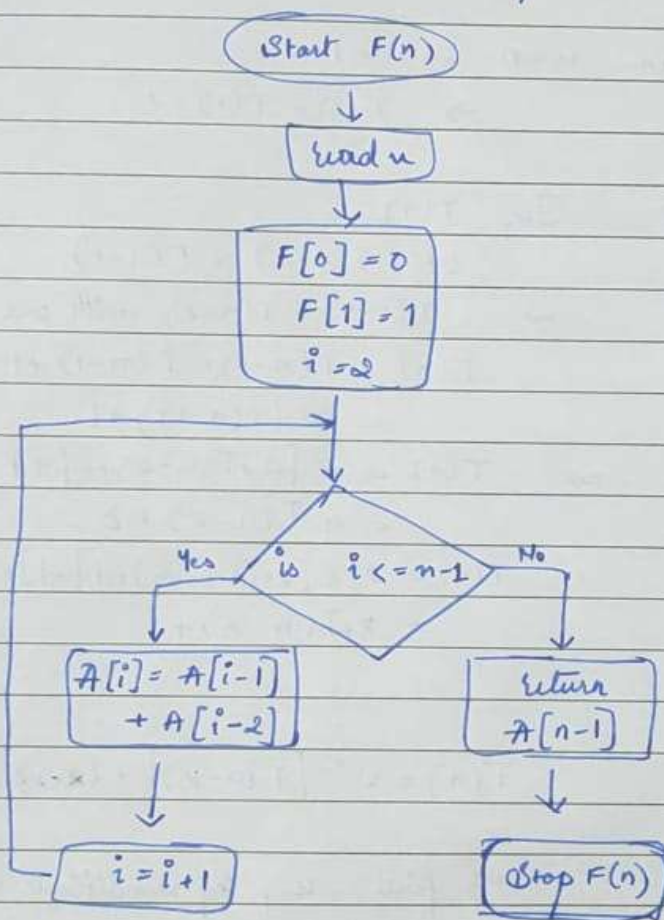 Start F(n)
read n
F[0] = 0
F[1] = 1
i = 2
Yes
is i <= n-1
No
A[i] = A[i-1]
+ A[i-2]
return
A[n-1]
i = i+1
Stop F(n)